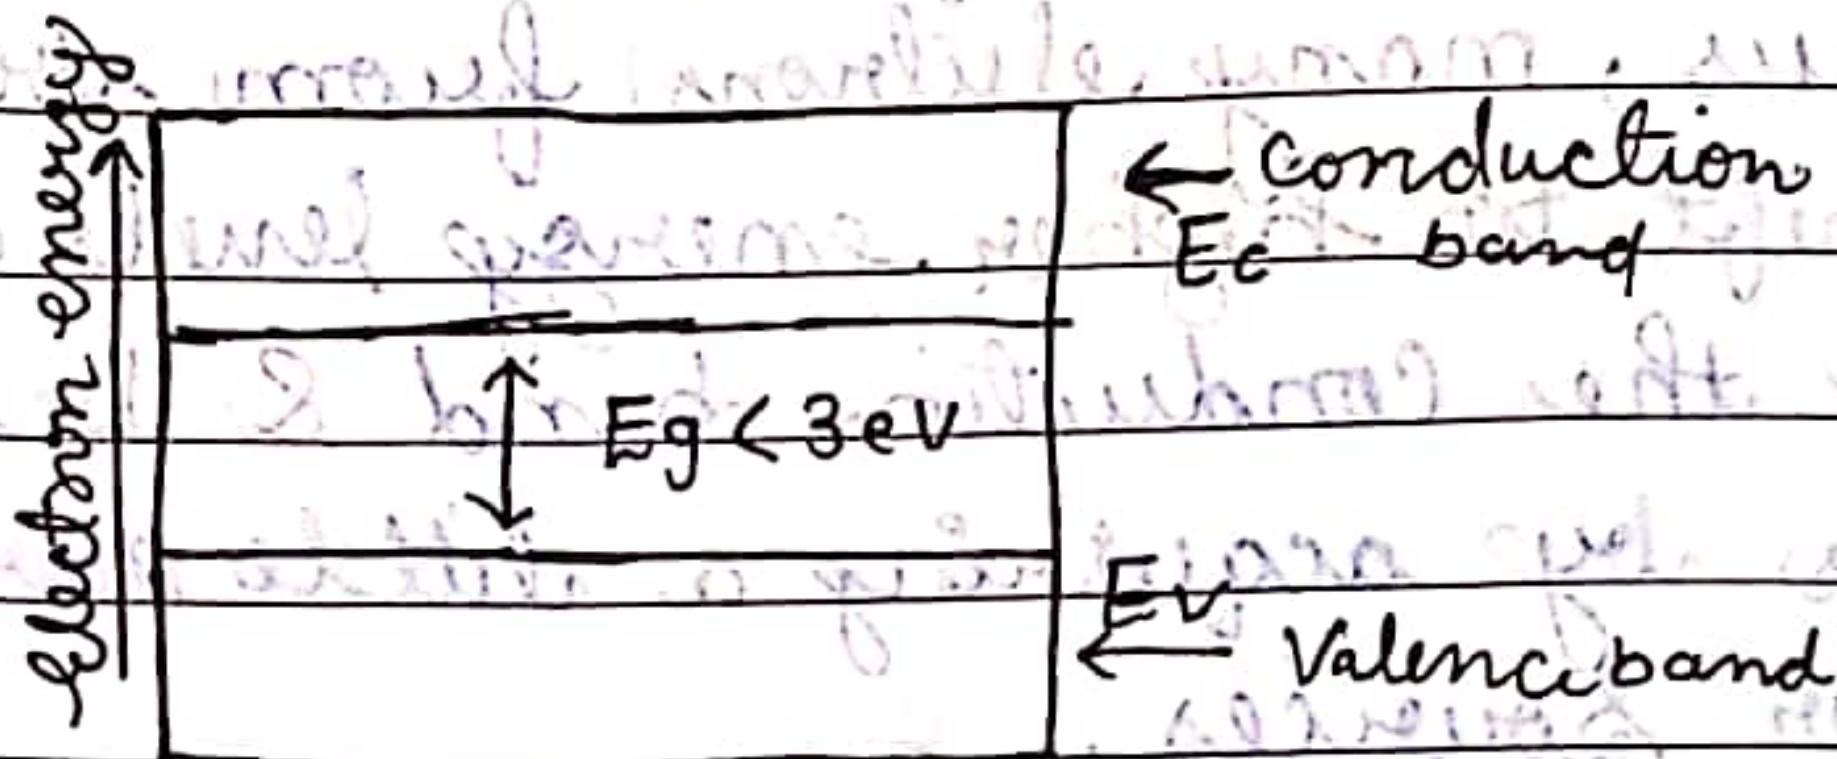 Electron energy
← Conduction
Ec band
Eg < 3eV
Ev
← Valence band